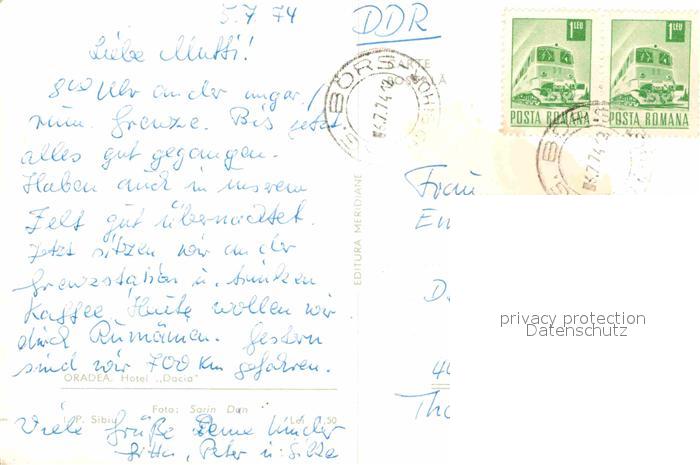 5.7.74
DDR
Liebe Mutti!
800 Uhr an der ungar./
rum. Grenze. Bis jetzt
alles gut gegangen.
Haben auch in unserem
Zelt gut übernachtet.
Jetzt sitzen wir an der
Grenzstation u. trinken
Kaffee. Heute wollen wir
durch Rumänien. Gestern
sind wir 700 km gefahren.
ORADEA. Hotel „Dacia"
Foto: Sorin Dan
I.P. Sibiu
Lei 1,50
Viele Grüße Deine Kinder
Gitta, Peter u. Silke
EDITURA MERIDIANE
CARTE
POȘTALĂ
BORȘ
BORȘ
1 LEU
POSTA ROMANA
1 LEU
POSTA ROMANA
Frau
D.
privacy protection
Datenschutz